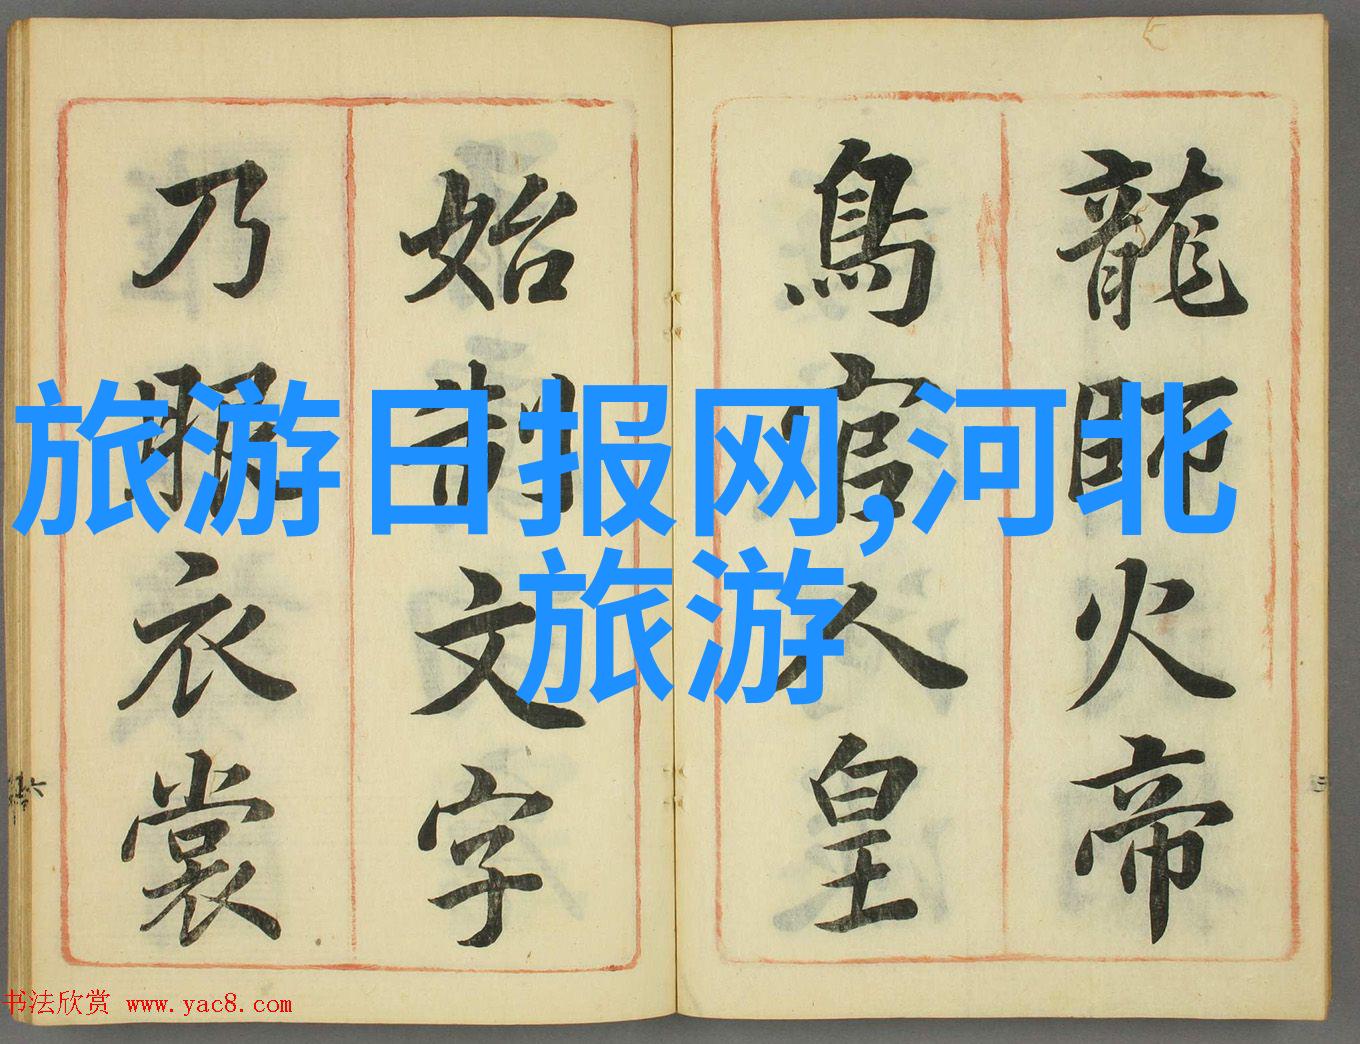 龍師火帝
鳥官人皇
始制文字
乃服衣裳
旅游日报网,河北
旅游
书法欣赏 www.yac8.com